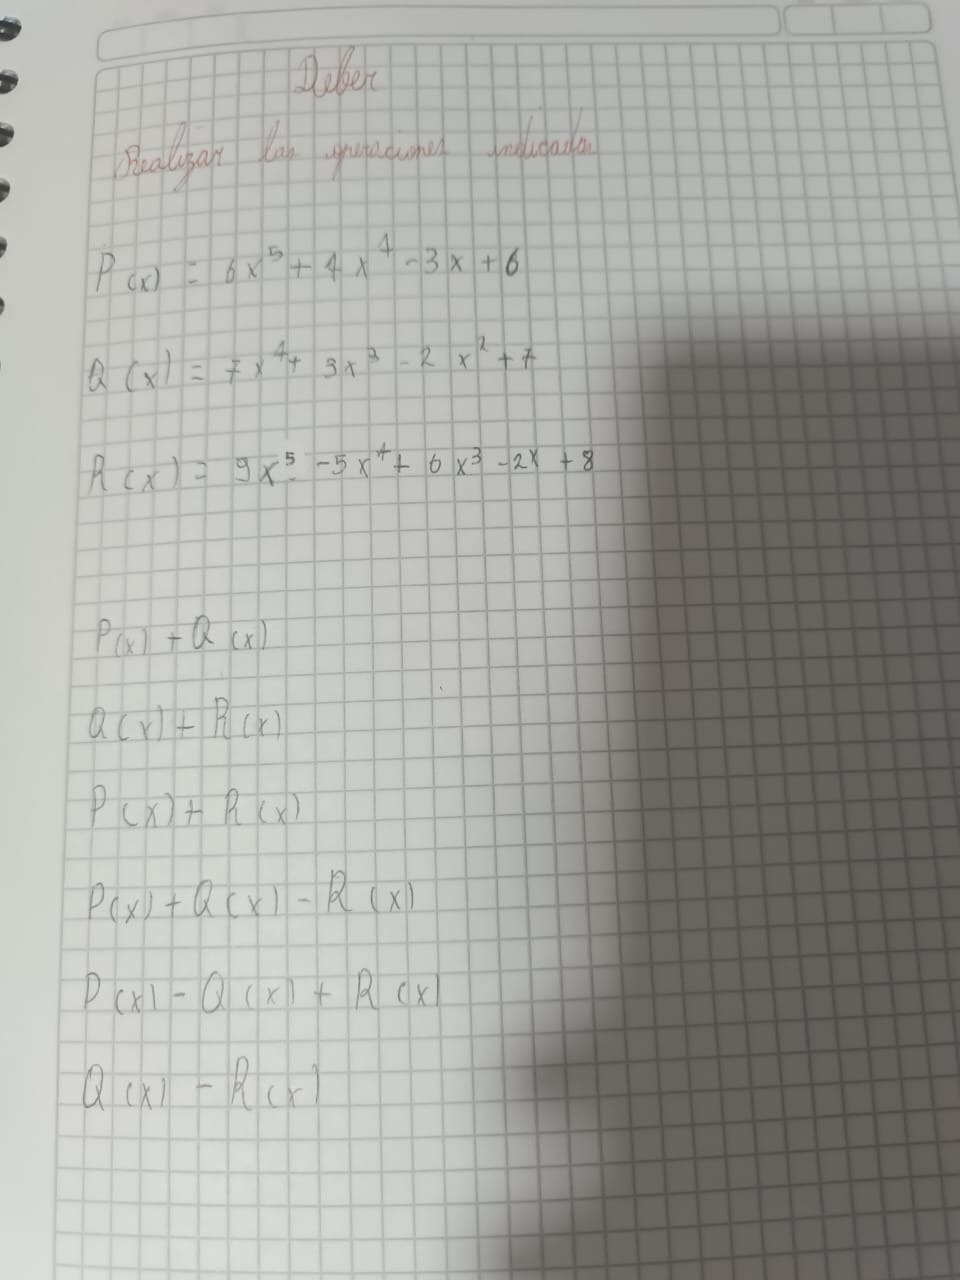 Deber
Realizar las operaciones indicadas
P(x) = 6x⁵ + 4x⁴ - 3x + 6
Q(x) = 7x⁴ + 3x³ - 2x² + 7
R(x) = 9x⁵ - 5x⁴ + 6x³ - 2x + 8
P(x) + Q(x)
Q(x) + R(x)
P(x) + R(x)
P(x) + Q(x) - R(x)
P(x) - Q(x) + R(x)
Q(x) - R(x)